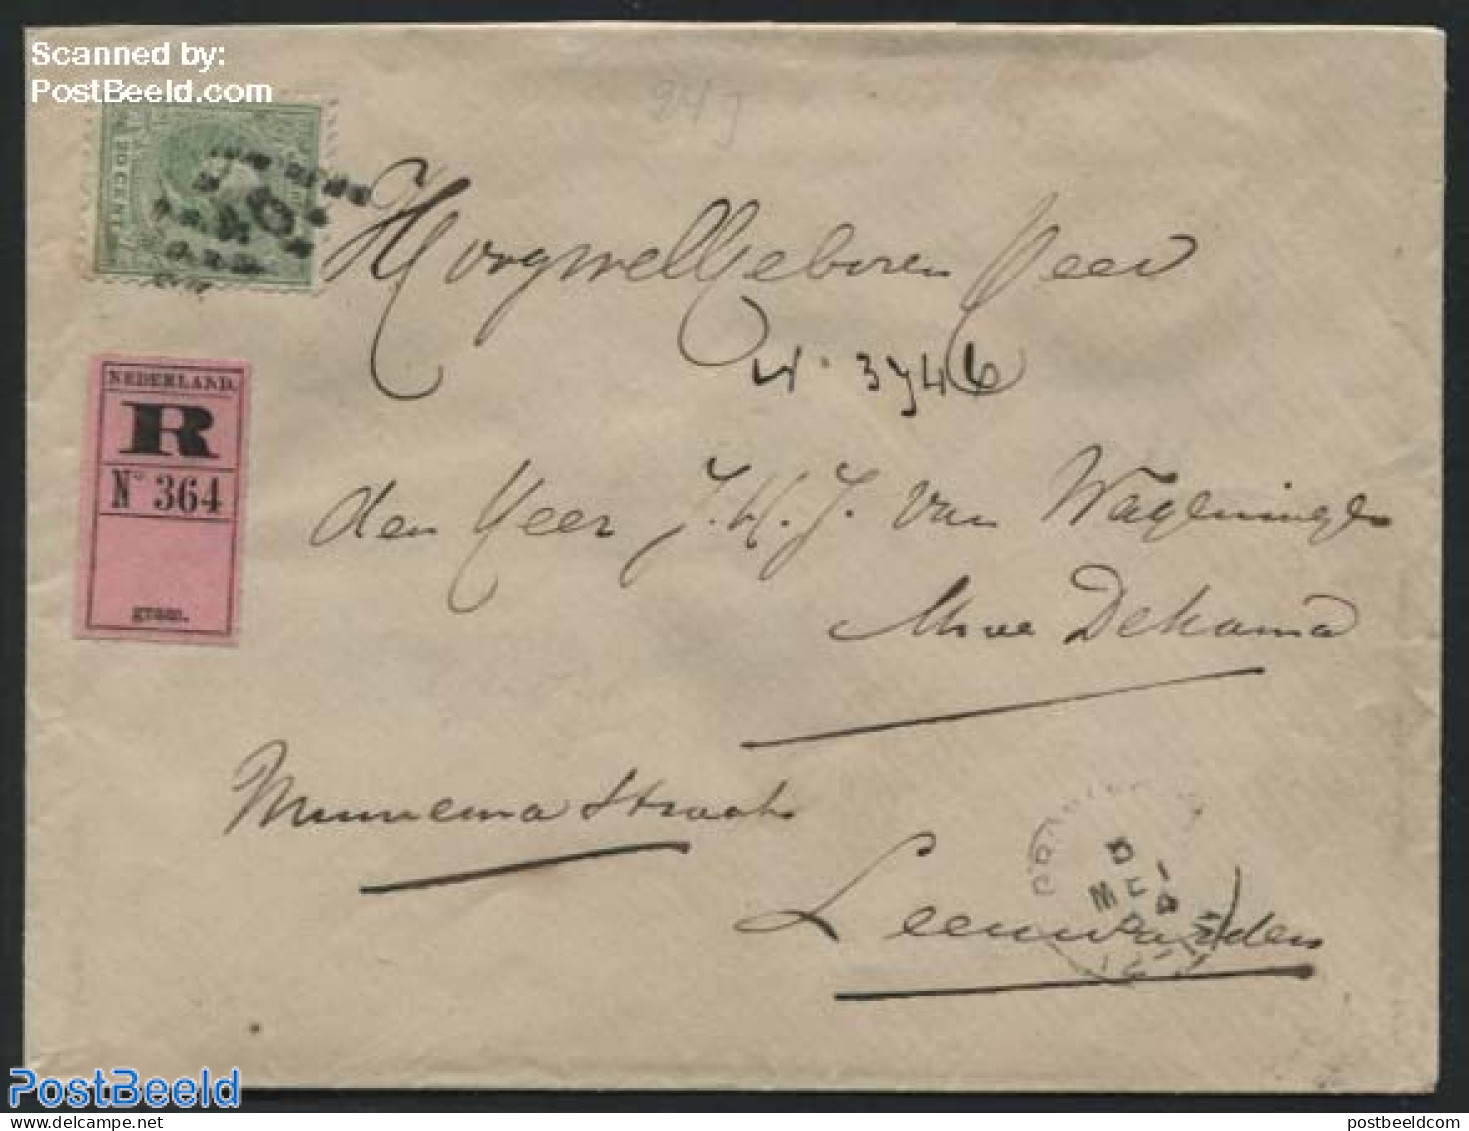 Scanned by:
PostBeeld.com
94 J
20 CENT
Hoogwelgeboren Heer
N° 3746
NEDERLAND.
R
N° 364
gram.
den Heer J. H. J. van Wageninge
Dekama
Minnema Straat
Leeuwarden
PostBeeld
www.postbeeld.com
postbeeldcom